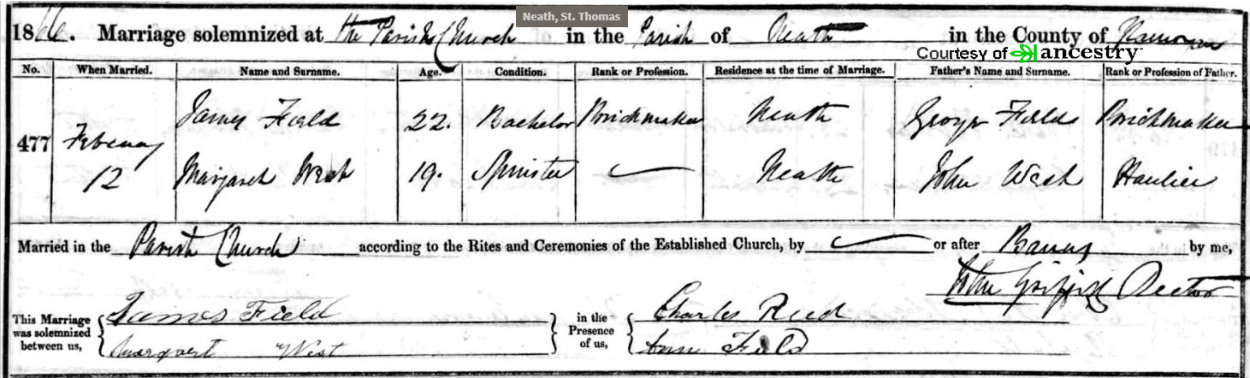 Neath, St. Thomas
1866. Marriage solemnized at the Parish Church in the Parish of Neath in the County of Glamorgan
Courtesy of ancestry
No. When Married. Name and Surname. Age. Condition. Rank or Profession. Residence at the time of Marriage. Father's Name and Surname. Rank or Profession of Father.
477 February 12
James Field 22. Bachelor Brickmaker Neath George Field Brickmaker
Margaret West 19. Spinster Neath John West Haulier
Married in the Parish Church according to the Rites and Ceremonies of the Established Church, by or after Banns by me,
John Griffith Rector
This Marriage was solemnized between us,
James Field
Margaret West
in the Presence of us,
Charles Reed
Ann Field